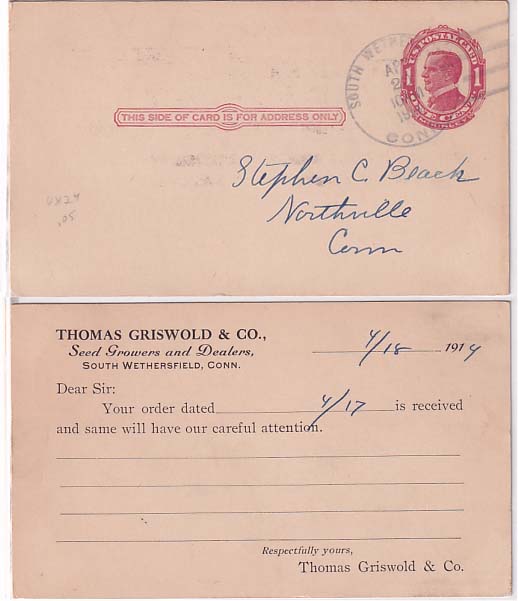 SOUTH WETHE
AP
CONN
U.S. POSTAL CARD
1 1
ONE CENT
THIS SIDE OF CARD IS FOR ADDRESS ONLY
Stephen C. Beach
Northville
Conn
UX24
.05
THOMAS GRISWOLD & CO.,
Seed Growers and Dealers,
SOUTH WETHERSFIELD, CONN.
4/18 1914
Dear Sir:
Your order dated 4/17 is received
and same will have our careful attention.
Respectfully yours,
Thomas Griswold & Co.